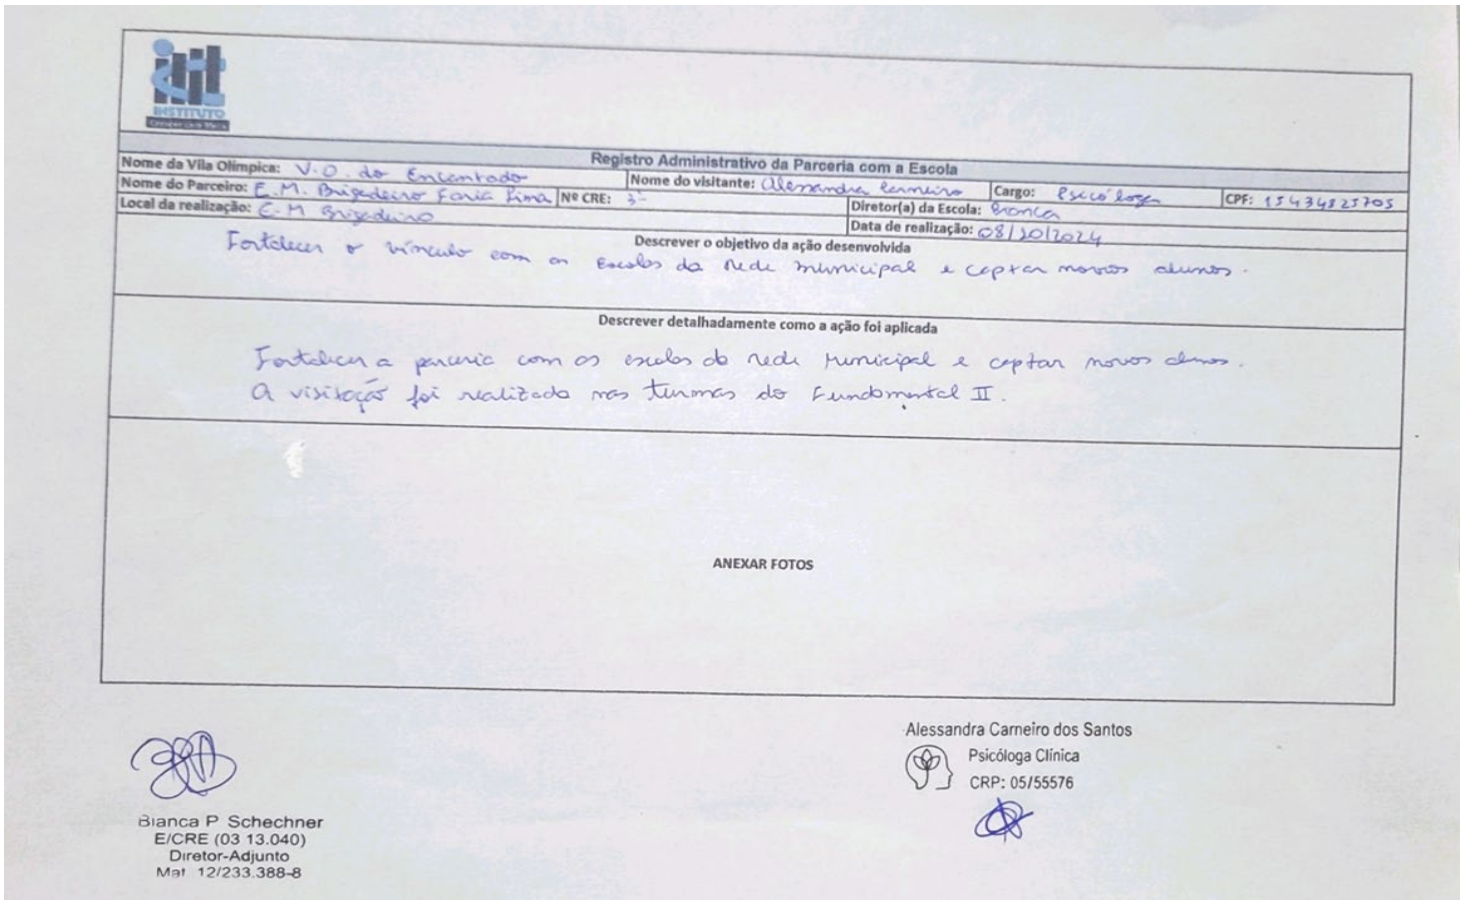 INSTITUTO
Registro Administrativo da Parceria com a Escola
Nome da Vila Olímpica: V.O. do Encantado Nome do visitante: Alessandra Carneiro Cargo: Psicóloga CPF: 15434825705
Nome do Parceiro: E.M. Brigadeiro Faria Lima Nº CRE: 3ª Diretor(a) da Escola: Bianca
Local da realização: E.M Brigadeiro Data de realização: 08/10/2024
Descrever o objetivo da ação desenvolvida
Fortalecer o vínculo com as escolas da rede municipal e captar novos alunos.
Descrever detalhadamente como a ação foi aplicada
Fortalecer a parceria com as escolas da rede Municipal e captar novos alunos.
A visitação foi realizada nas turmas do Fundamental II.
ANEXAR FOTOS
Alessandra Carneiro dos Santos
Psicóloga Clínica
CRP: 05/55576
Bianca P Schechner
E/CRE (03 13.040)
Diretor-Adjunto
Mat 12/233.388-8